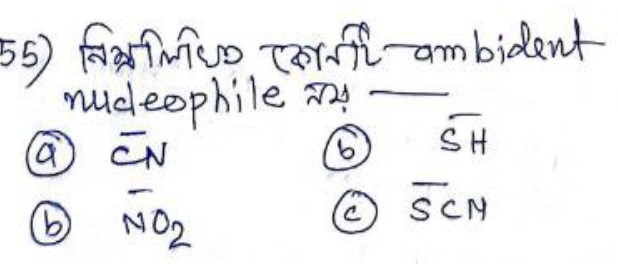 55) নিম্নলিখিত কোনটি ambident
nucleophile নয় —
(a) C̄N (b) S̄H
(b) N̄O₂ (c) S̄CN